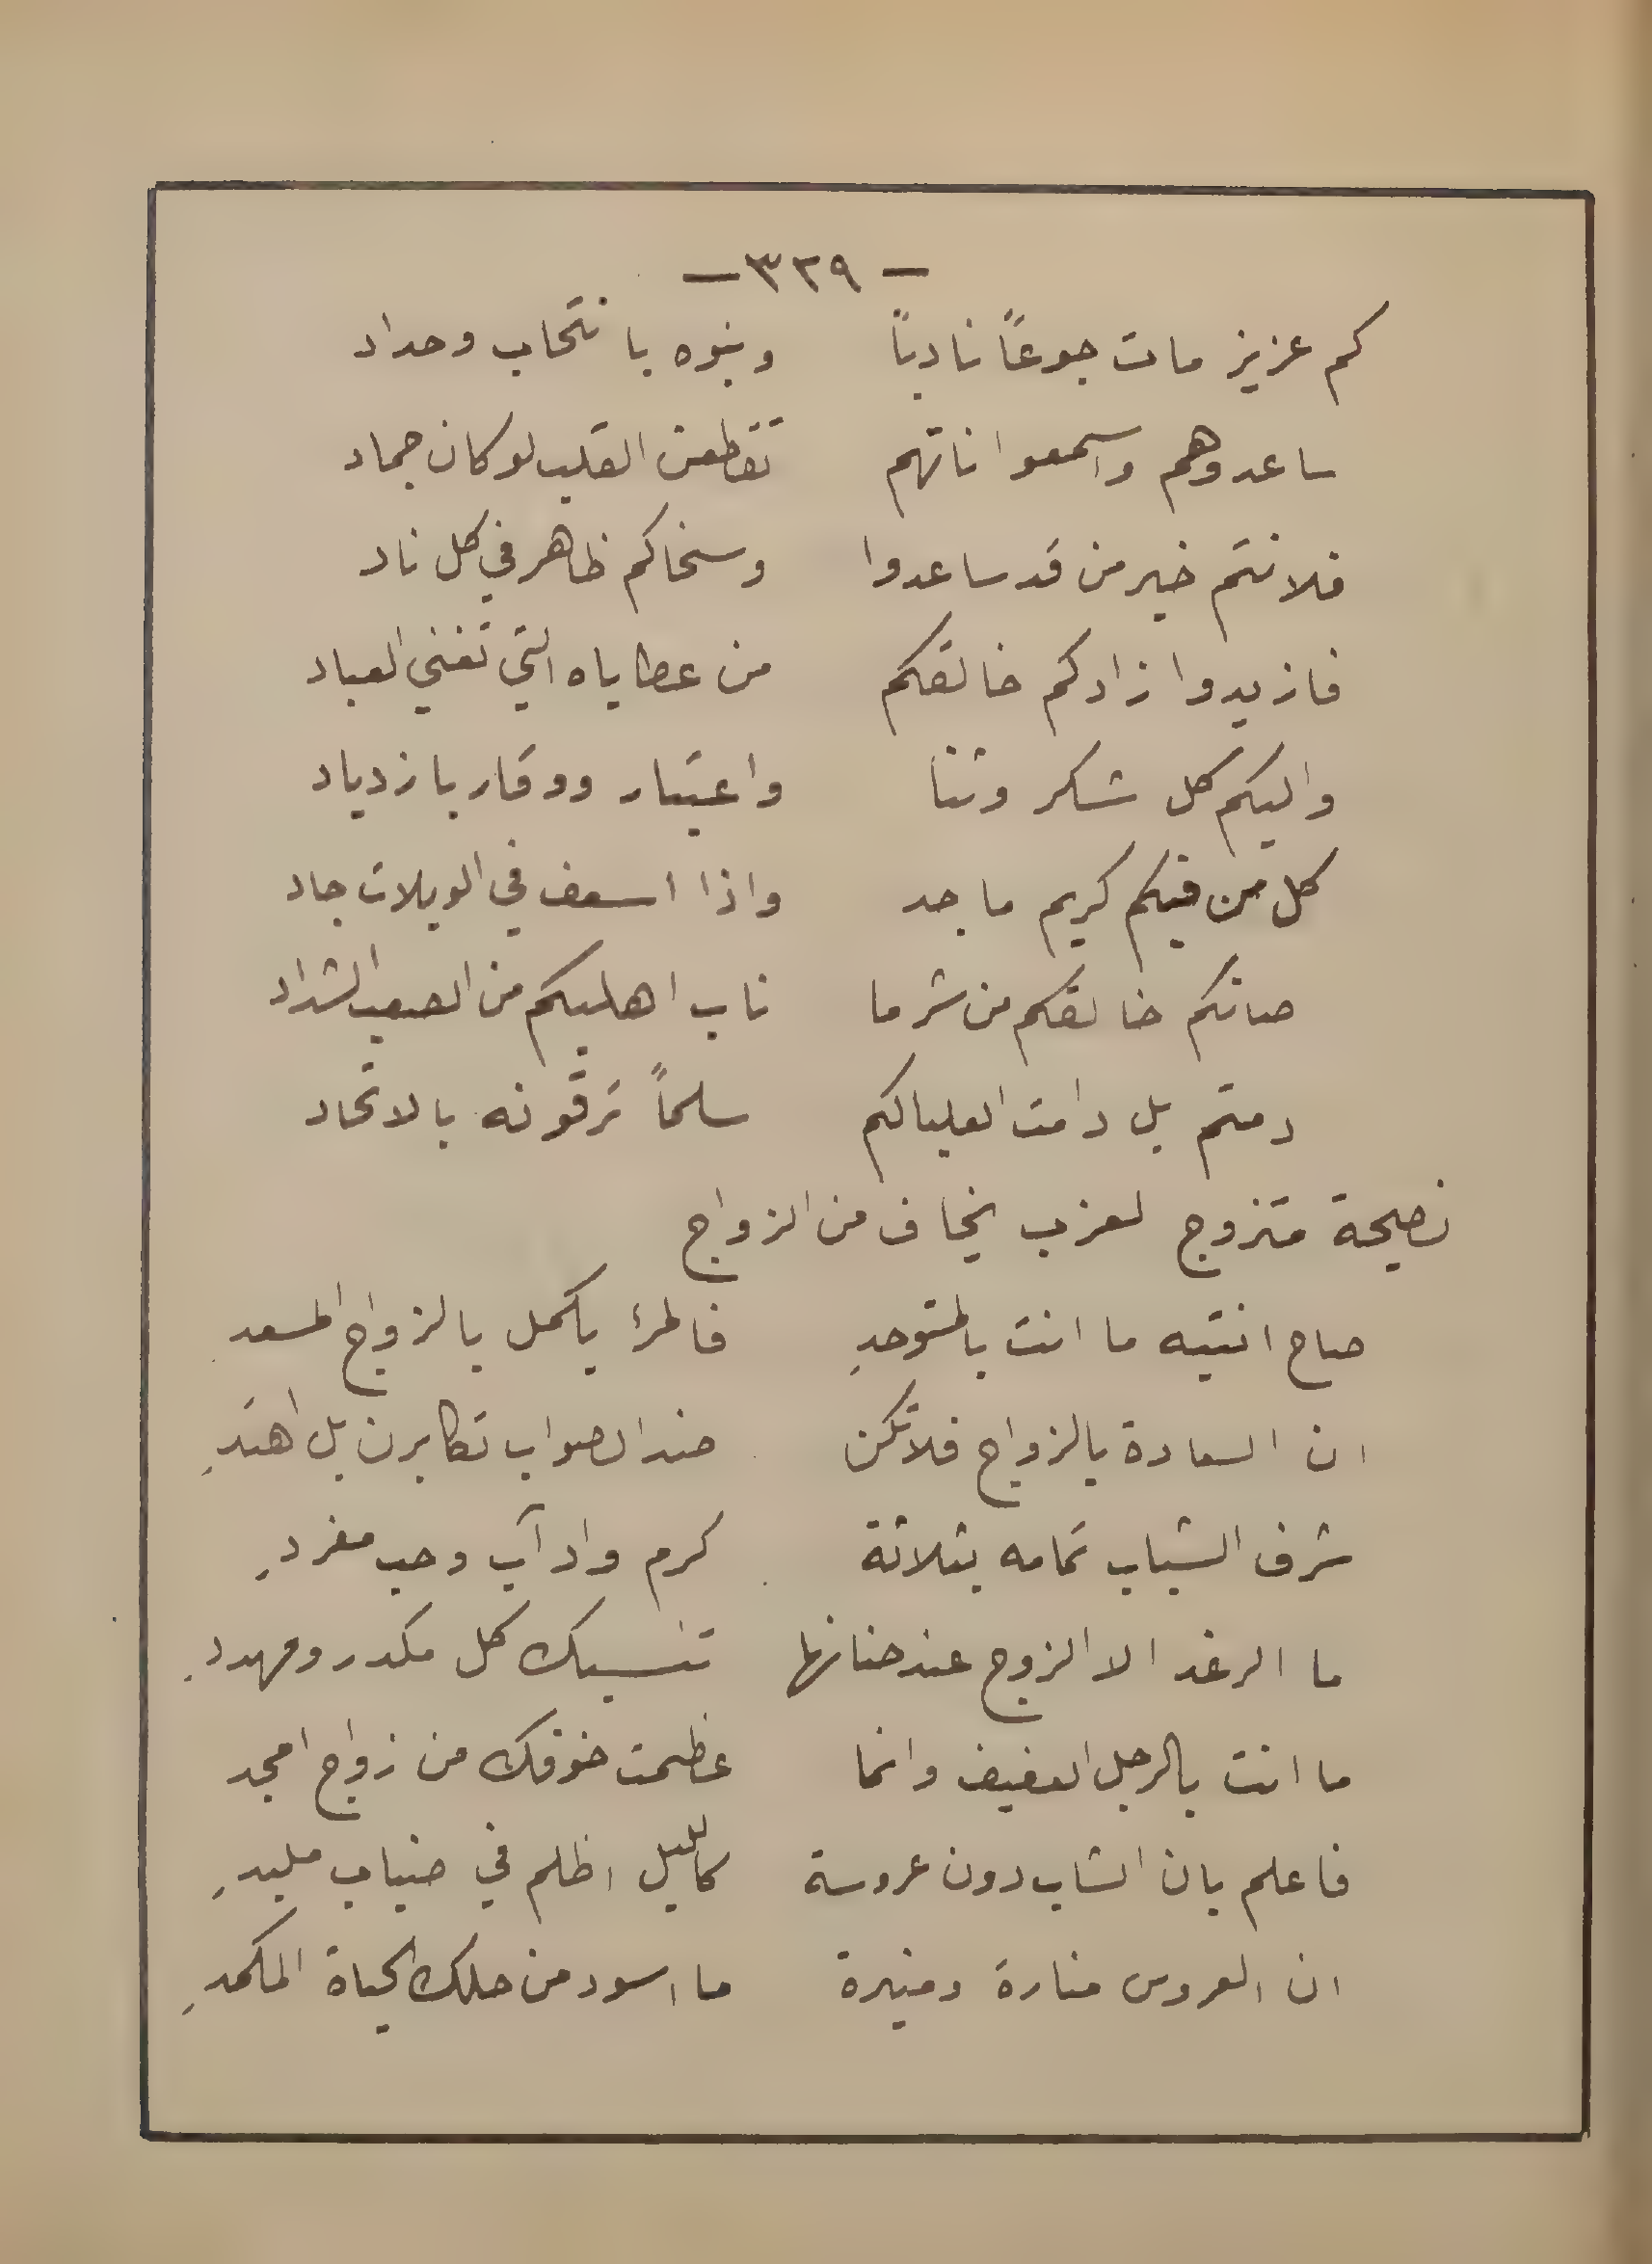 - ٣٢٩ -
كم عزيز مات جوعاً نادباً وبنوه بانتحاب وحداد
ساعدوهم واسمعوا اناتهم تقطعن القلب لو كان جماد
فلانتم خير من قد ساعدوا وسخاكم ظاهر في كل ناد
فازيدوا زادكم خالقكم من عطاياه التي تغني العباد
واليكم كل شكر وثنا واعتبار ووقار بازدياد
كل من فيكم كريم ماجد واذا اسعف في الويلات جاد
صانكم خالقكم من شر ما ناب اهليكم من الصعب الشداد
دمتم بل دامت العليا لكم سلماً ترقونه بالاتحاد
نصيحة متزوج لعزب يخاف من الزواج
صاح انتبه ما انت بالمتوحدِ فالمرئ يكمل بالزواج المسعد
ان السعادة بالزواج فلا تكن ضد الصواب تكابرن بل اهتدِ
شرف الشباب تمامه بثلاثة كرم وادآب وحب مفردِ
ما الرغد الا الزوج عند حنانها تنسيك كل مكدر ومهددِ
ما انت بالرجل العفيف وانما عظمت خوفك من زواج امجد
فاعلم بان الشاب دون عروسة كالليل اظلم في ضباب ملبدِ
ان العروس منارة ومنيرة ما اسود من حلك الحياة المكمدِ